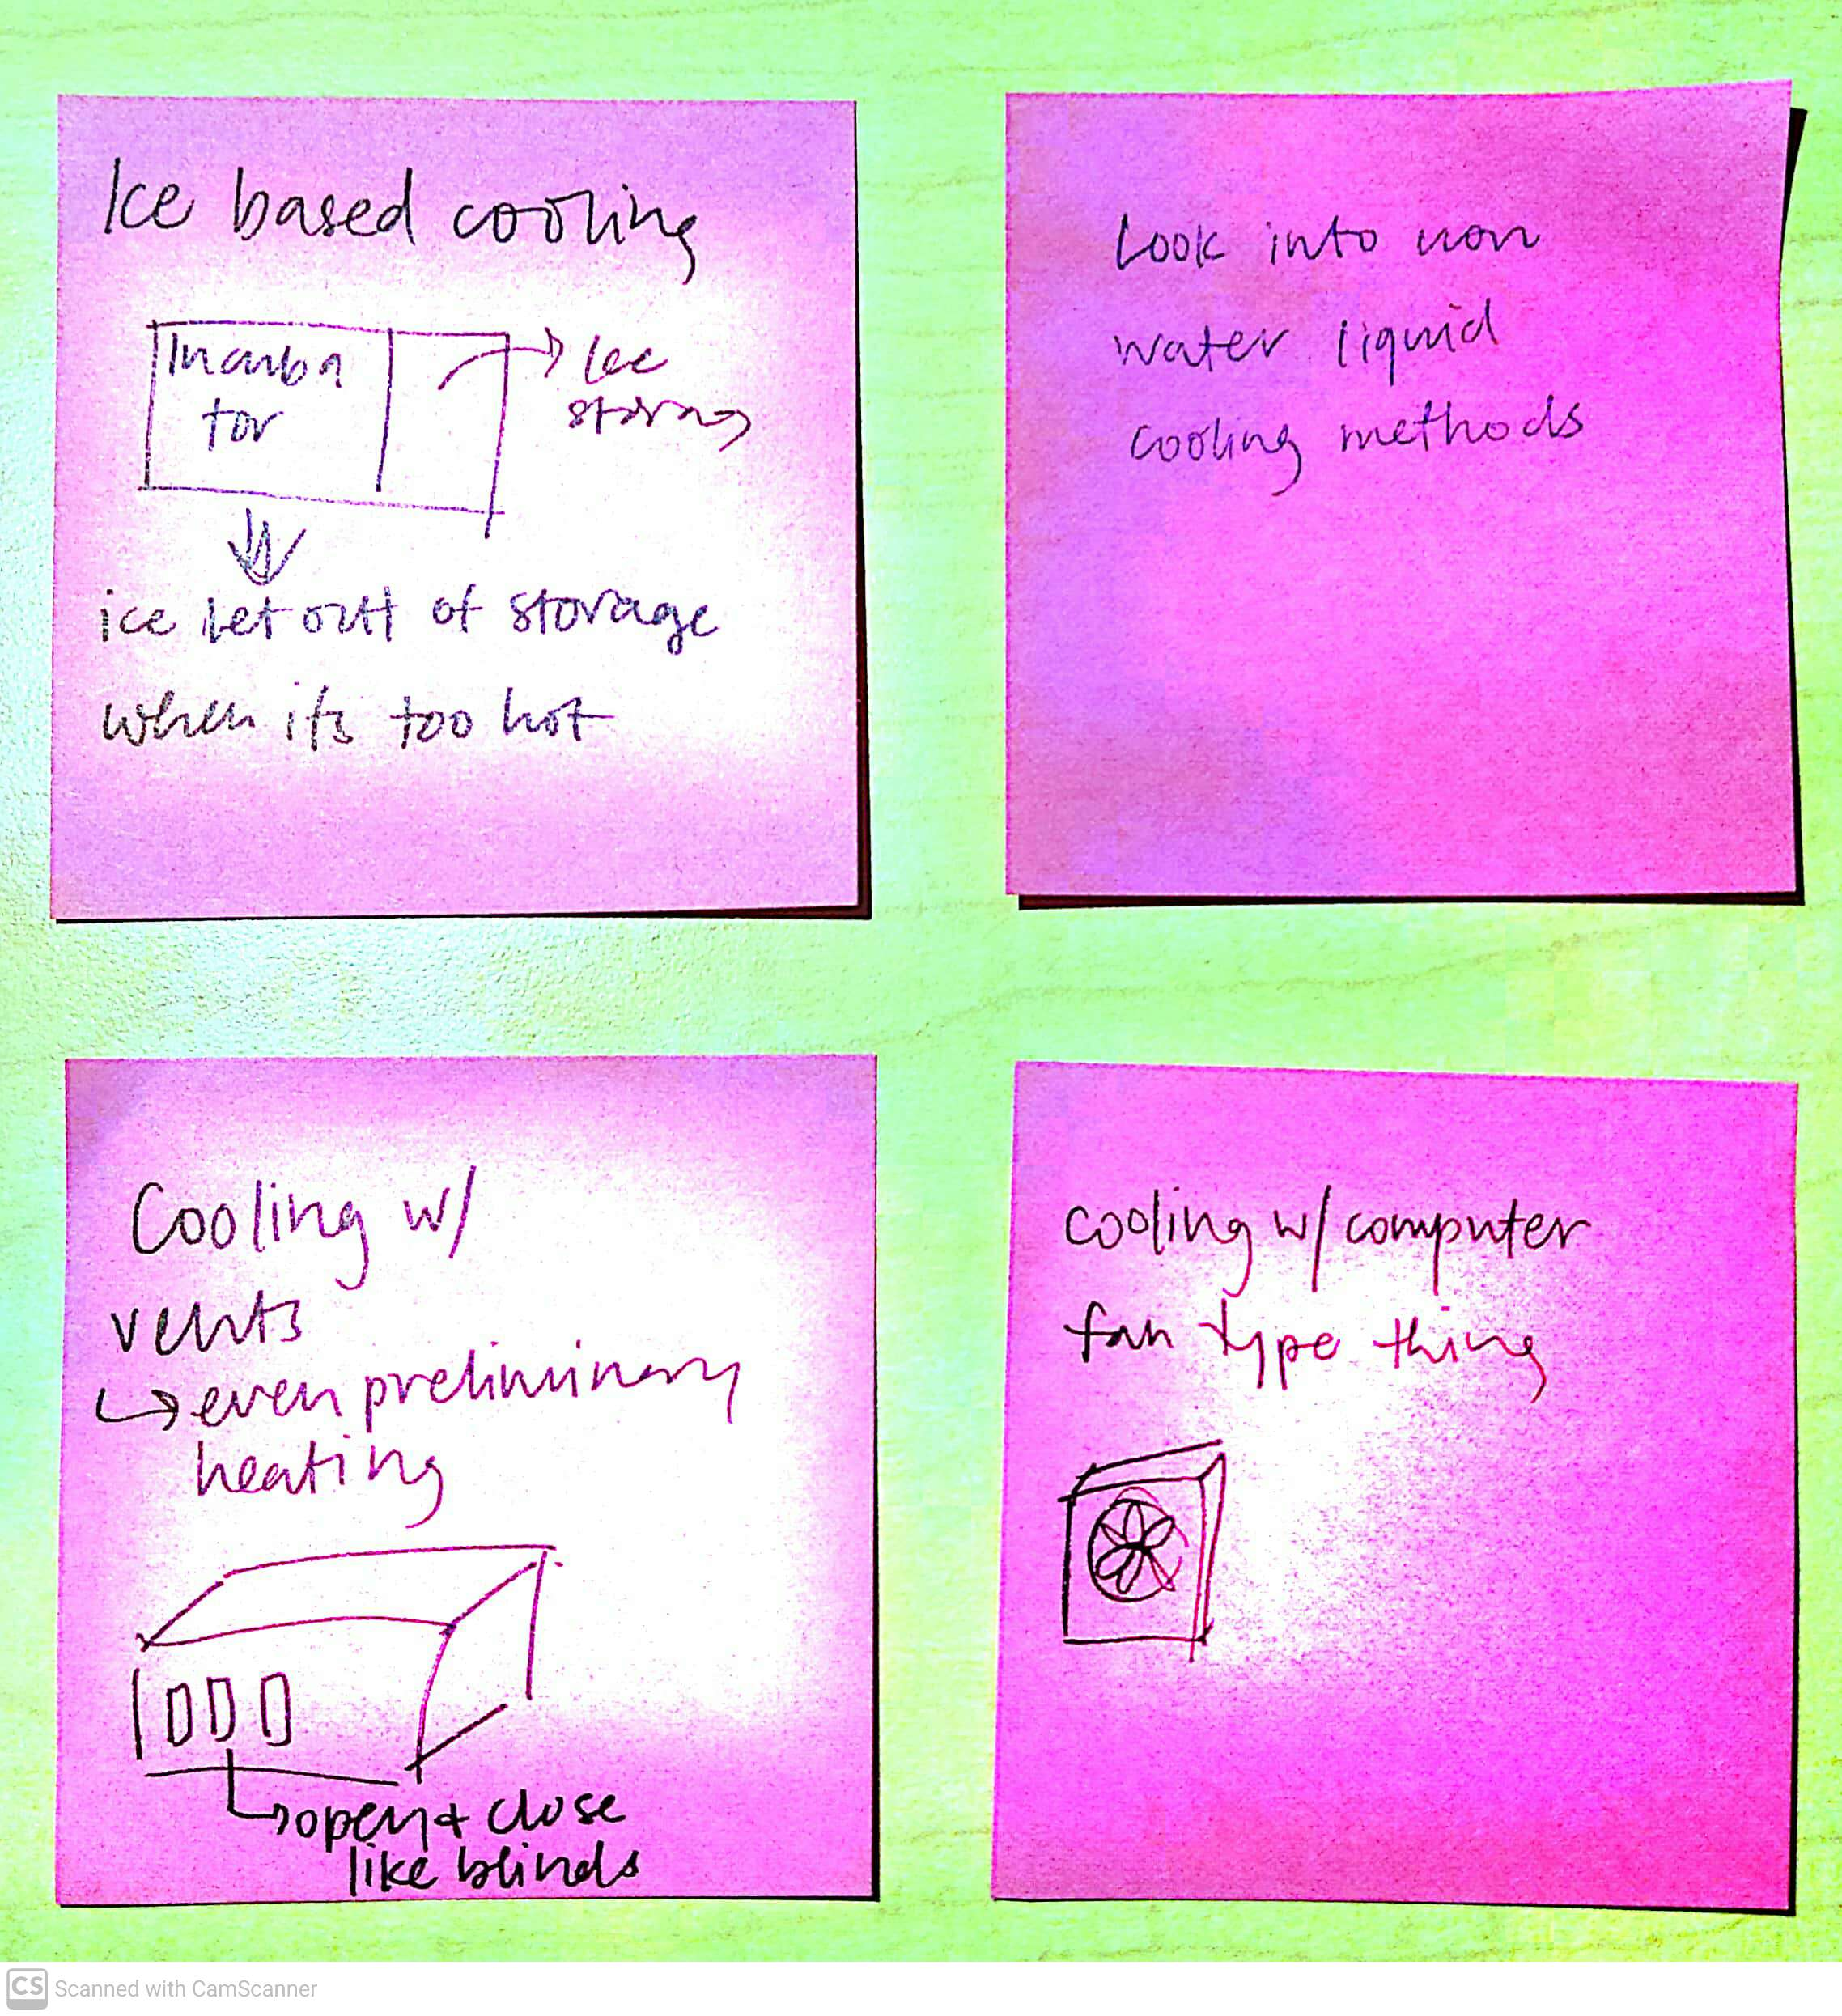 Ice based cooling
Incuba
tor
Ice
storag
ice let out of storage
when its too hot
Look into non
water liquid
cooling methods
Cooling w/
vents
even preliminary
heating
open + close
like blinds
cooling w/ computer
fan type thing
CS Scanned with CamScanner